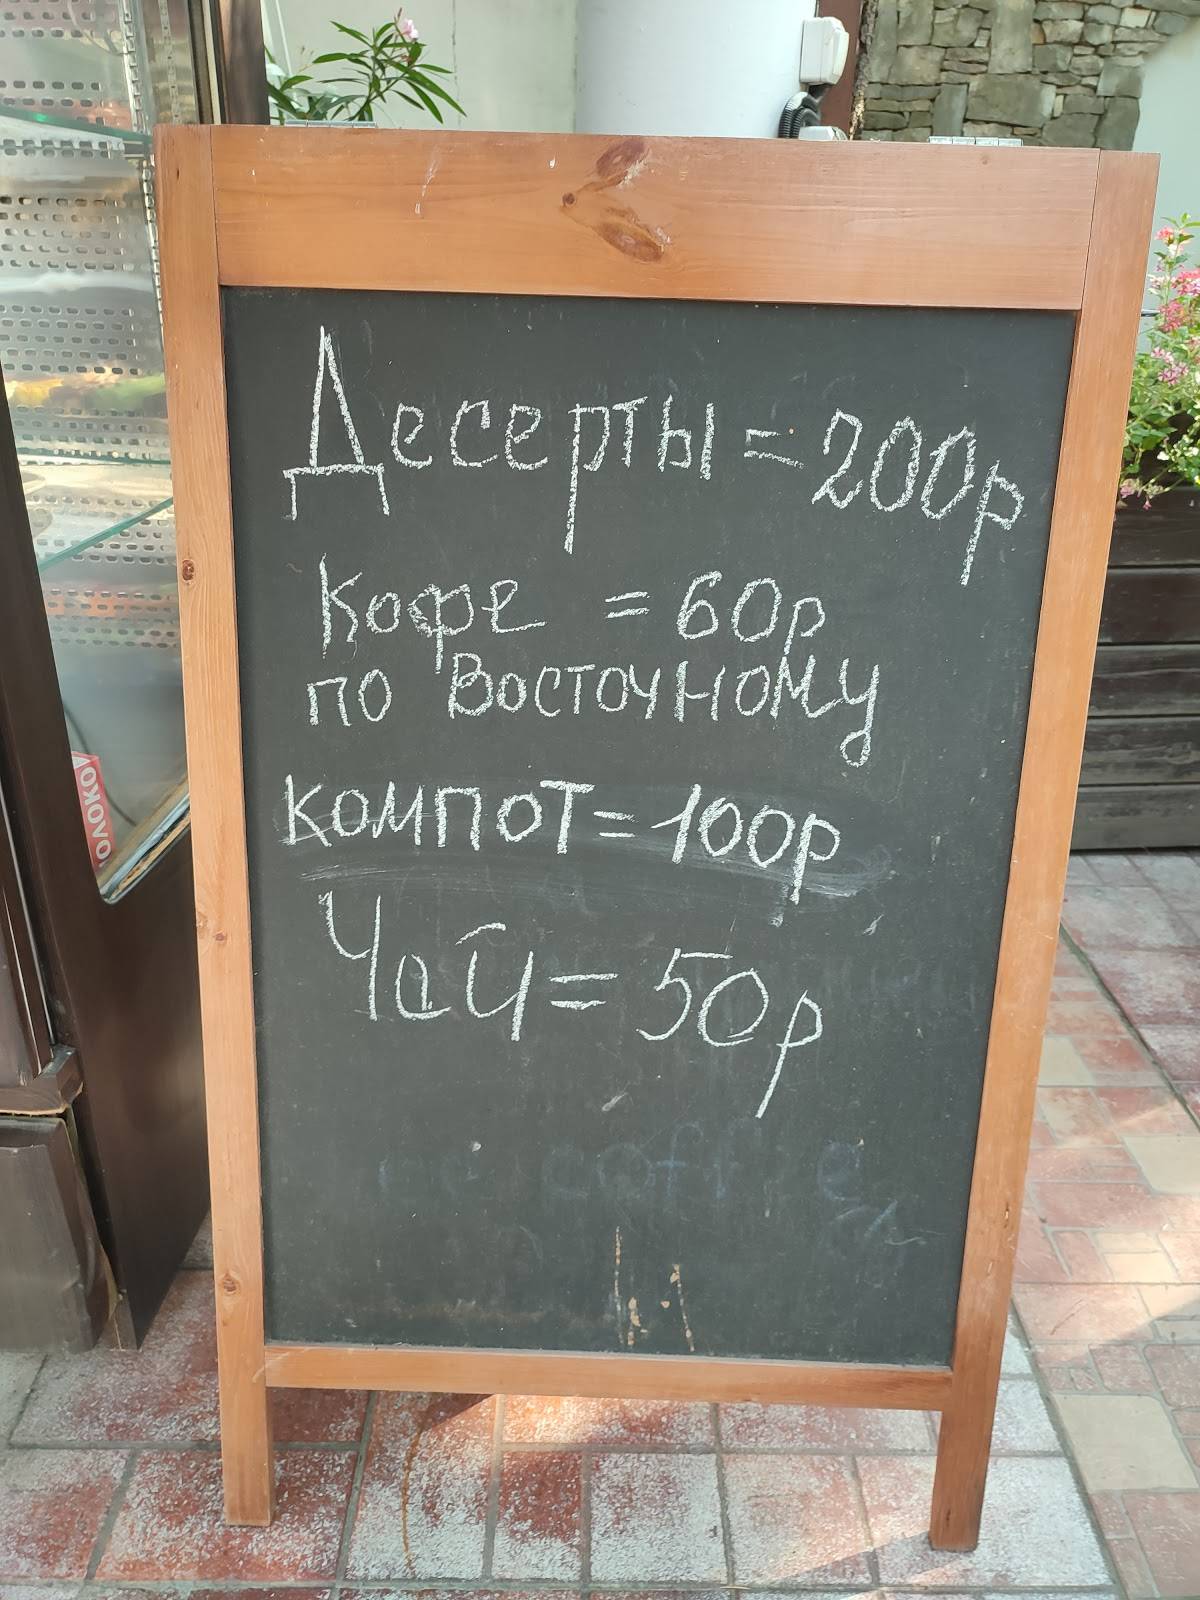 Десерты = 200р
Кофе = 60р
по Восточному
компот = 100р
Чай = 50р
coffee